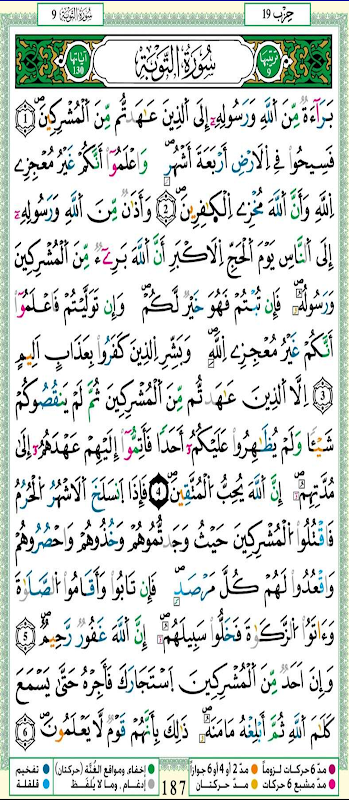 حِزْب 19
سُورَةُ التَّوْبَةِ 9
تَرْتِيبُهَا 9
سُورَةُ التَّوْبَةِ
ءَايَاتُهَا 130
بَرَآءَةٌ مِّنَ اَ۬للَّهِ وَرَسُولِهِۦٓ إِلَى اَ۬لذِينَ عَٰهَدتُّم مِّنَ اَ۬لْمُشْرِكِينَۖ 1
فَسِيحُواْ فِے اِ۬لَارْضِ أَرْبَعَةَ أَشْهُرٖۖ وَاعْلَمُوٓاْ أَنَّكُمْ غَيْرُ مُعْجِزِے
اِ۬للَّهِ وَأَنَّ اَ۬للَّهَ مُخْزِے اِ۬لْكٰ۪فِرِينَۖ 2 وَأَذَٰنٞ مِّنَ اَ۬للَّهِ وَرَسُولِهِۦٓ
إِلَى اَ۬لنَّاسِ يَوْمَ اَ۬لْحَجِّ اِ۬لَاكْبَرِ أَنَّ اَ۬للَّهَ بَرِےٓءٞ مِّنَ اَ۬لْمُشْرِكِينَ
وَرَسُولُهُۥۖ فَإِن تُبْتُمْ فَهُوَ خَيْرٞ لَّكُمْۖ وَإِن تَوَلَّيْتُمْ فَاعْلَمُوٓاْ
أَنَّكُمْ غَيْرُ مُعْجِزِے اِ۬للَّهِۖ وَبَشِّرِ اِ۬لذِينَ كَفَرُواْ بِعَذَابٍ اَلِيمٍ
3 اِلَّا اَ۬لذِينَ عَٰهَدتُّم مِّنَ اَ۬لْمُشْرِكِينَ ثُمَّ لَمْ يَنقُصُوكُمْ
شَيْـٔاٗ وَلَمْ يُظَٰهِرُواْ عَلَيْكُمُۥٓ أَحَداٗ فَأَتِمُّوٓاْ إِلَيْهِمْ عَهْدَهُمُۥٓ إِلَىٰ
مُدَّتِهِمُۥٓۖ إِنَّ اَ۬للَّهَ يُحِبُّ اُ۬لْمُتَّقِينَۖ 4 فَإِذَا اَ۪نسَلَخَ اَ۬لَاشْهُرُ اُ۬لْحُرُمُ
فَاقْتُلُواْ اُ۬لْمُشْرِكِينَ حَيْثُ وَجَدتُّمُوهُمْ وَخُذُوهُمْ وَاحْصُرُوهُمْ
وَاقْعُدُواْ لَهُمْ كُلَّ مَرْصَدٖۖ فَإِن تَابُواْ وَأَقَامُواْ اُ۬لصَّلَوٰةَ
وَءَاتَوُاْ اُ۬لزَّكَوٰةَ فَخَلُّواْ سَبِيلَهُمُۥٓۖ إِنَّ اَ۬للَّهَ غَفُورٞ رَّحِيمٞۖ 5
وَإِنَ اَحَدٞ مِّنَ اَ۬لْمُشْرِكِينَ اَ۪سْتَجَارَكَ فَأَجِرْهُ حَتَّىٰ يَسْمَعَ
كَلَٰمَ اَ۬للَّهِ ثُمَّ أَبْلِغْهُ مَامَنَهُۥۖ ذَٰلِكَ بِأَنَّهُمْ قَوْمٞ لَّا يَعْلَمُونَۖ 6
مدّ 6 حركات لزوماً مدّ 2 أو 4 أو 6 جوازا
مدّ مشبع 6 حركات مدّ حركتان
187
إخفاء، ومواقع الغُنَّة (حركتان) تفخيم
إدغام، وما لا يُلفَظ قلقلة